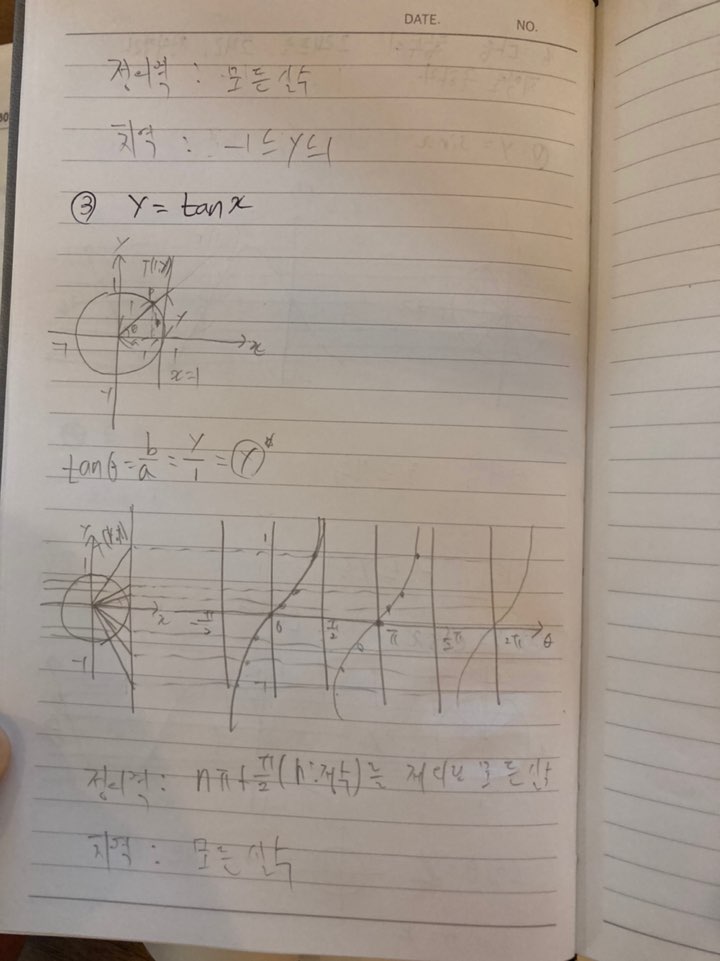 DATE. NO.
정의역 : 모든 실수
치역 : -1≤y≤1
③ y = tan x
y
T(1,y)
1
P
1
y
θ
b
a
-1
1
x
x=1
-1
tanθ = b/a = y/1 = y
y
1
1
x
-π/2
0
π/2
π
3/2π
2π
θ
-1
-1
정의역 : nπ+π/2 (n:정수)를 제외한 모든 실수
치역 : 모든 실수